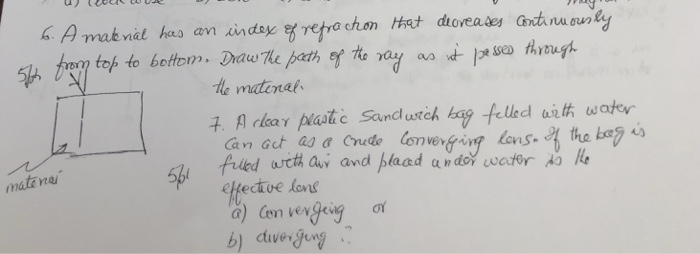 6. A material has an index of refraction that decreases continuously
5pts from top to bottom. Draw the path of the ray as it passes through
the material.
material
7. A clear plastic Sandwich bag filled with water
Can act as a crude Converging lens. If the bag is
5pt filled with air and placed under water is the
effective lens
a) Converging or
b) diverging ?